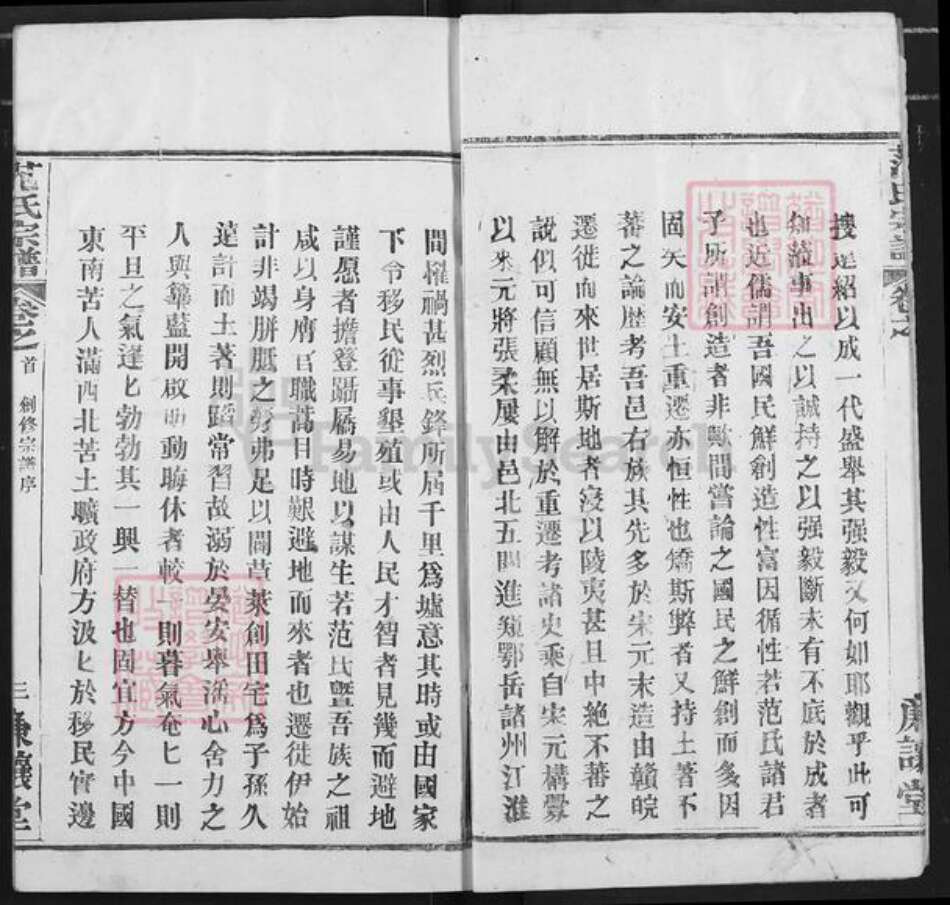 搜 紹以成一代盛舉其强毅又何如耶觀乎此可
知蒞事出之以誠持之以强毅斷未有不底於成者
也近儒謂吾國民鮮創造性富因循性若范氏諸君
子所謂創造者非歟間嘗論之國民之鮮創而多因
固矣而安土重遷亦恒性也矯斯弊者又持土著不
蕃之論歷考吾邑右族其先多於宋元末造由贛皖
遷徙而來世居斯地者寖以陵夷甚且中絶不蕃之
說似可信顧無以解於重遷考諸史乘自宋元構釁
以來元將張柔屢由邑北五關進窺鄂岳諸州江淮
間罹禍甚烈兵鋒所屆千里爲墟意其時或由國家
下令移民從事墾殖或由人民才智者見幾而避地
謹愿者擔登躡屩易地以謀生若范氏曁吾族之祖
咸以身膺官職蒿目時艱避地而來者也遷徙伊始
計非竭胼胝之勞弗足以闢草萊創田宅爲子孫久
遠計而土著則蹈常習故溺於晏安舉 心舍力之
人與篳藍開啟 動晦休者較一則暮氣奄匕一則
平旦之氣蓬匕勃勃其一興一替也固宜方今中國
東南苦人滿西北苦土曠政府方汲匕於移民實邊
范氏宗譜 卷之首 創修宗譜序 三 廉讓堂
范氏宗譜 卷之 廉讓堂
FamilySearch